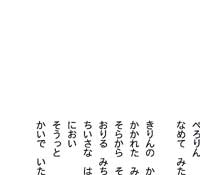 ぺろりん
なめて みた
きりんの か
かかれた み
そらから そ
おりる みち
ちいさな は
におい
そうっと
かいで いた